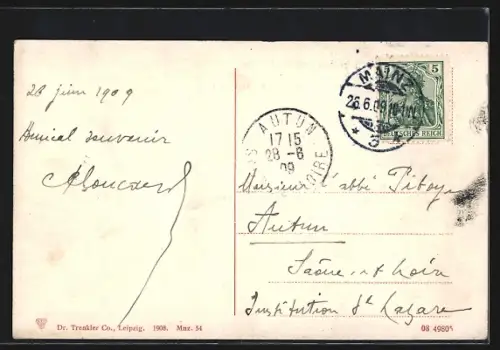 26 juin 1909
Amical souvenir
MAINZ
26.6.09
* 5 *
5
DEUTSCHES REICH
AUTUN
17 15
28 -6
09
LOIRE
Monsieur l'abbé Pitoye
Autun
Saône et Loire
Institution St Lazare
Dr. Trenkler Co., Leipzig. 1908. Mnz. 54
08 49805